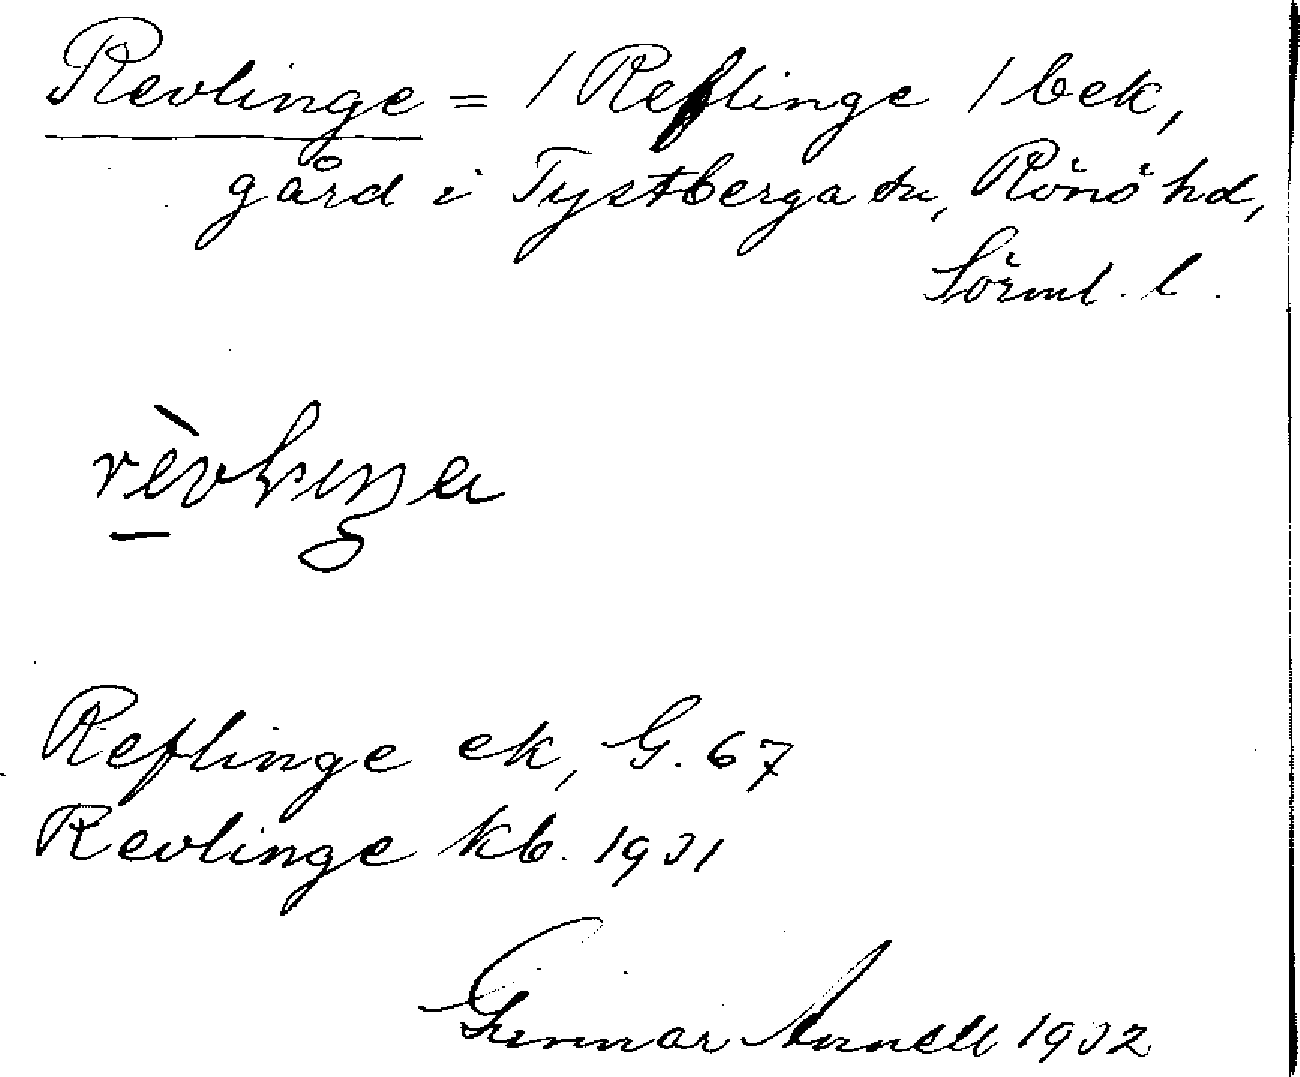 Revlinge = / Reflinge / bek,
gård i Tystberga sn, Rönö hd,
Sörml. l.
Reflinge ek, G. 67
Revlinge kb. 1931
Gunnar Arnell 1932